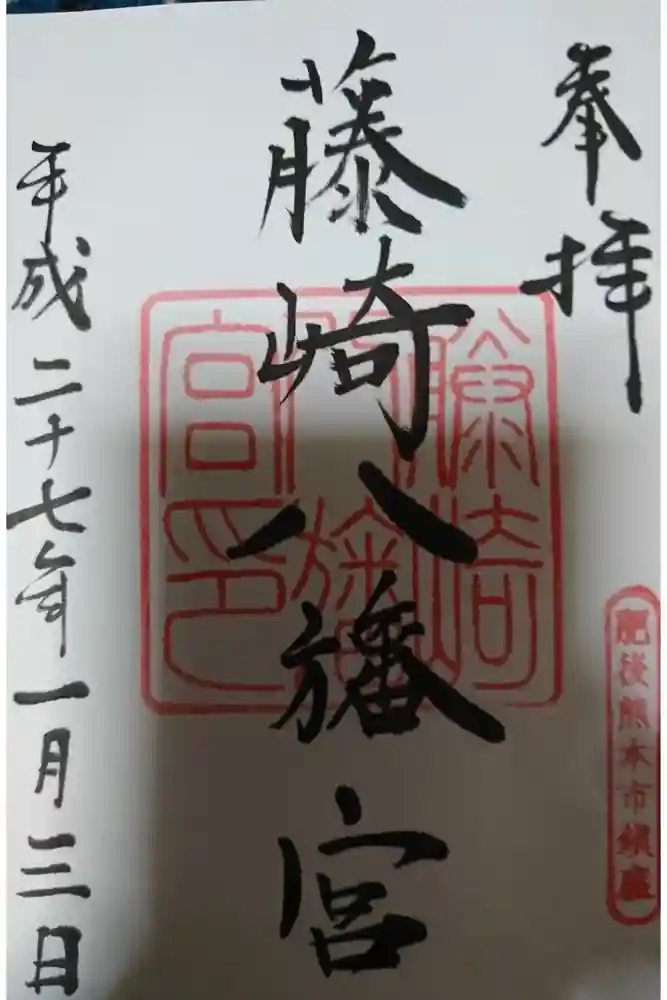 奉拝
藤崎八旛宮
肥後熊本市鎮座
平成二十七年一月三日